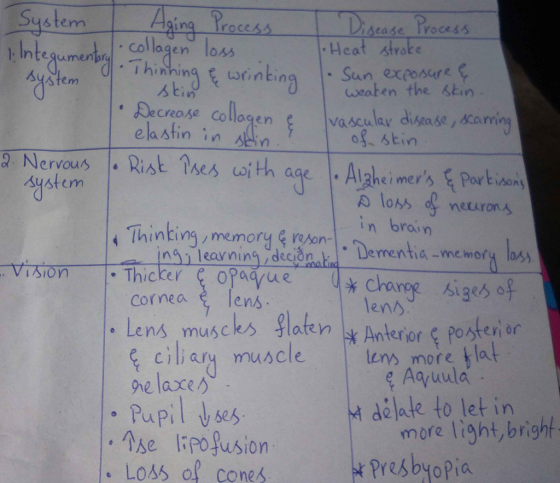 System Aging Process Disease Process
1. Integumentary
system
• collagen loss
• Thinning & wrinking
skin
• Decrease collagen &
elastin in skin.
• Heat stroke
• Sun exposure &
weaken the skin.
vascular disease, scarring
of skin.
2. Nervous
system
• Risk ↑ses with age
• Thinking, memory & reson-
ing, learning, decion making
• Alzheimer's & Parkison's
loss of neurons
in brain
• Dementia - memory loss
Vision
• Thicker & opaque
cornea & lens.
• Lens muscles flaten
& ciliary muscle
relaxes.
• Pupil ↓ses.
• ↑se lipofusion.
• Loss of cones
* Change sizes of
lens.
* Anterior & posterior
lens more flat
& Aquula.
* délate to let in
more light, bright.
* Presbyopia